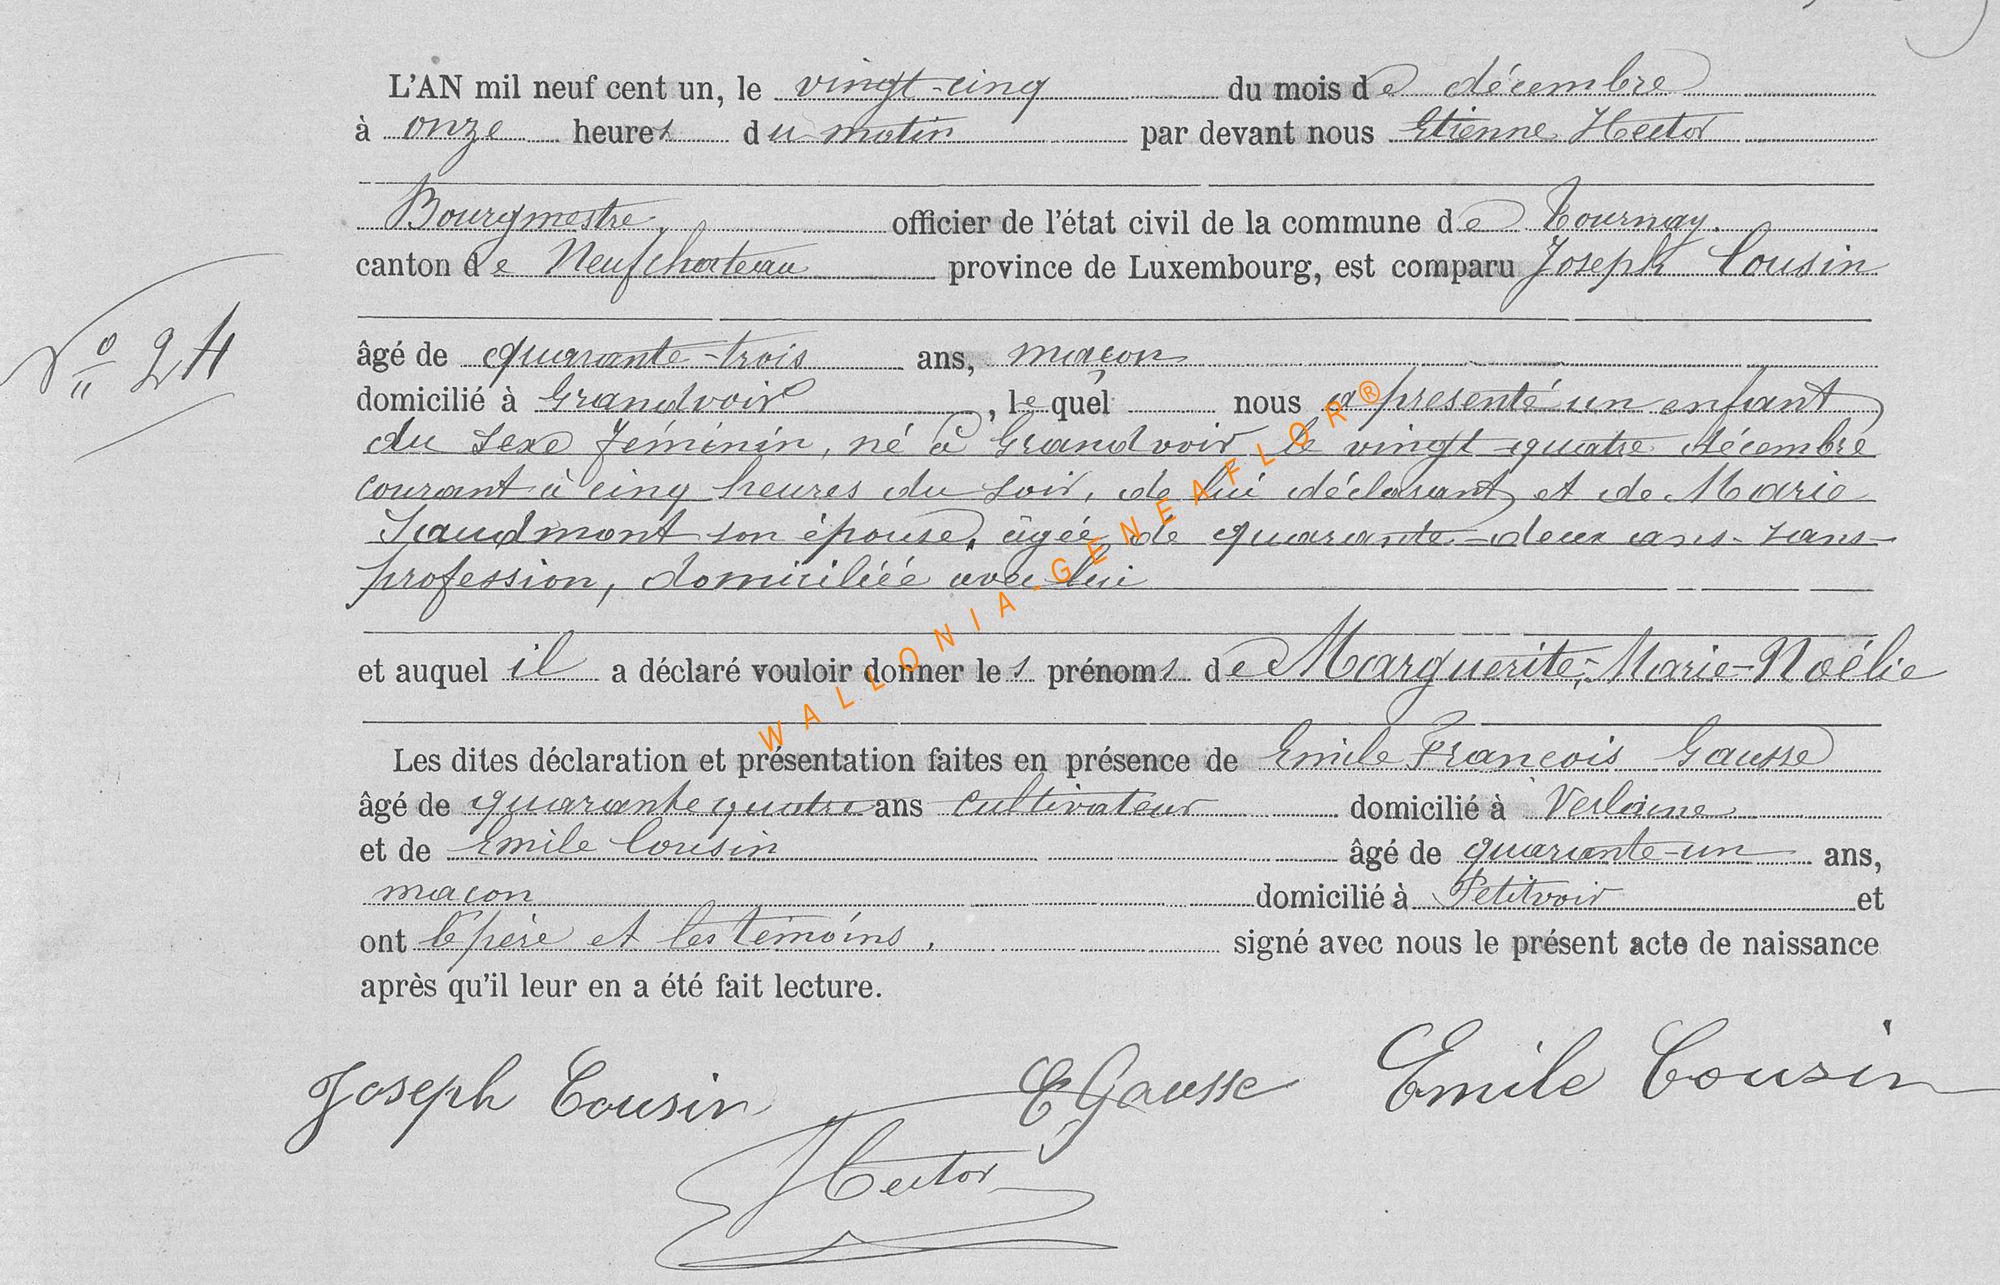 L'AN mil neuf cent un, le vingt-cinq du mois de décembre
à onze heures du matin par devant nous Etienne Hector
Bourgmestre, officier de l'état civil de la commune de Tournay.
canton de Neufchateau province de Luxembourg, est comparu Joseph Cousin
N° 24
âgé de quarante-trois ans, maçon
domicilié à Grandvoir, le quel nous a présenté un enfant
du sexe féminin, né à Grandvoir le vingt-quatre décembre
courant à cinq heures du soir, de lui déclarant et de Marie
son épouse, âgée de quarante-deux ans, sans
profession, domiciliée avec lui
et auquel il a déclaré vouloir donner les prénoms de Marguerite-Marie-Noélie
Les dites déclaration et présentation faites en présence de Emile François Gausse
âgé de quarante quatre ans cultivateur domicilié à Verlaine
et de Emile Cousin âgé de quarante-un ans,
maçon domicilié à Petitvoir et
ont le père et les témoins. signé avec nous le présent acte de naissance
après qu'il leur en a été fait lecture.
Joseph Cousin E Gausse Emile Cousin
Hector
WALLONIA-GENEAFLOR®